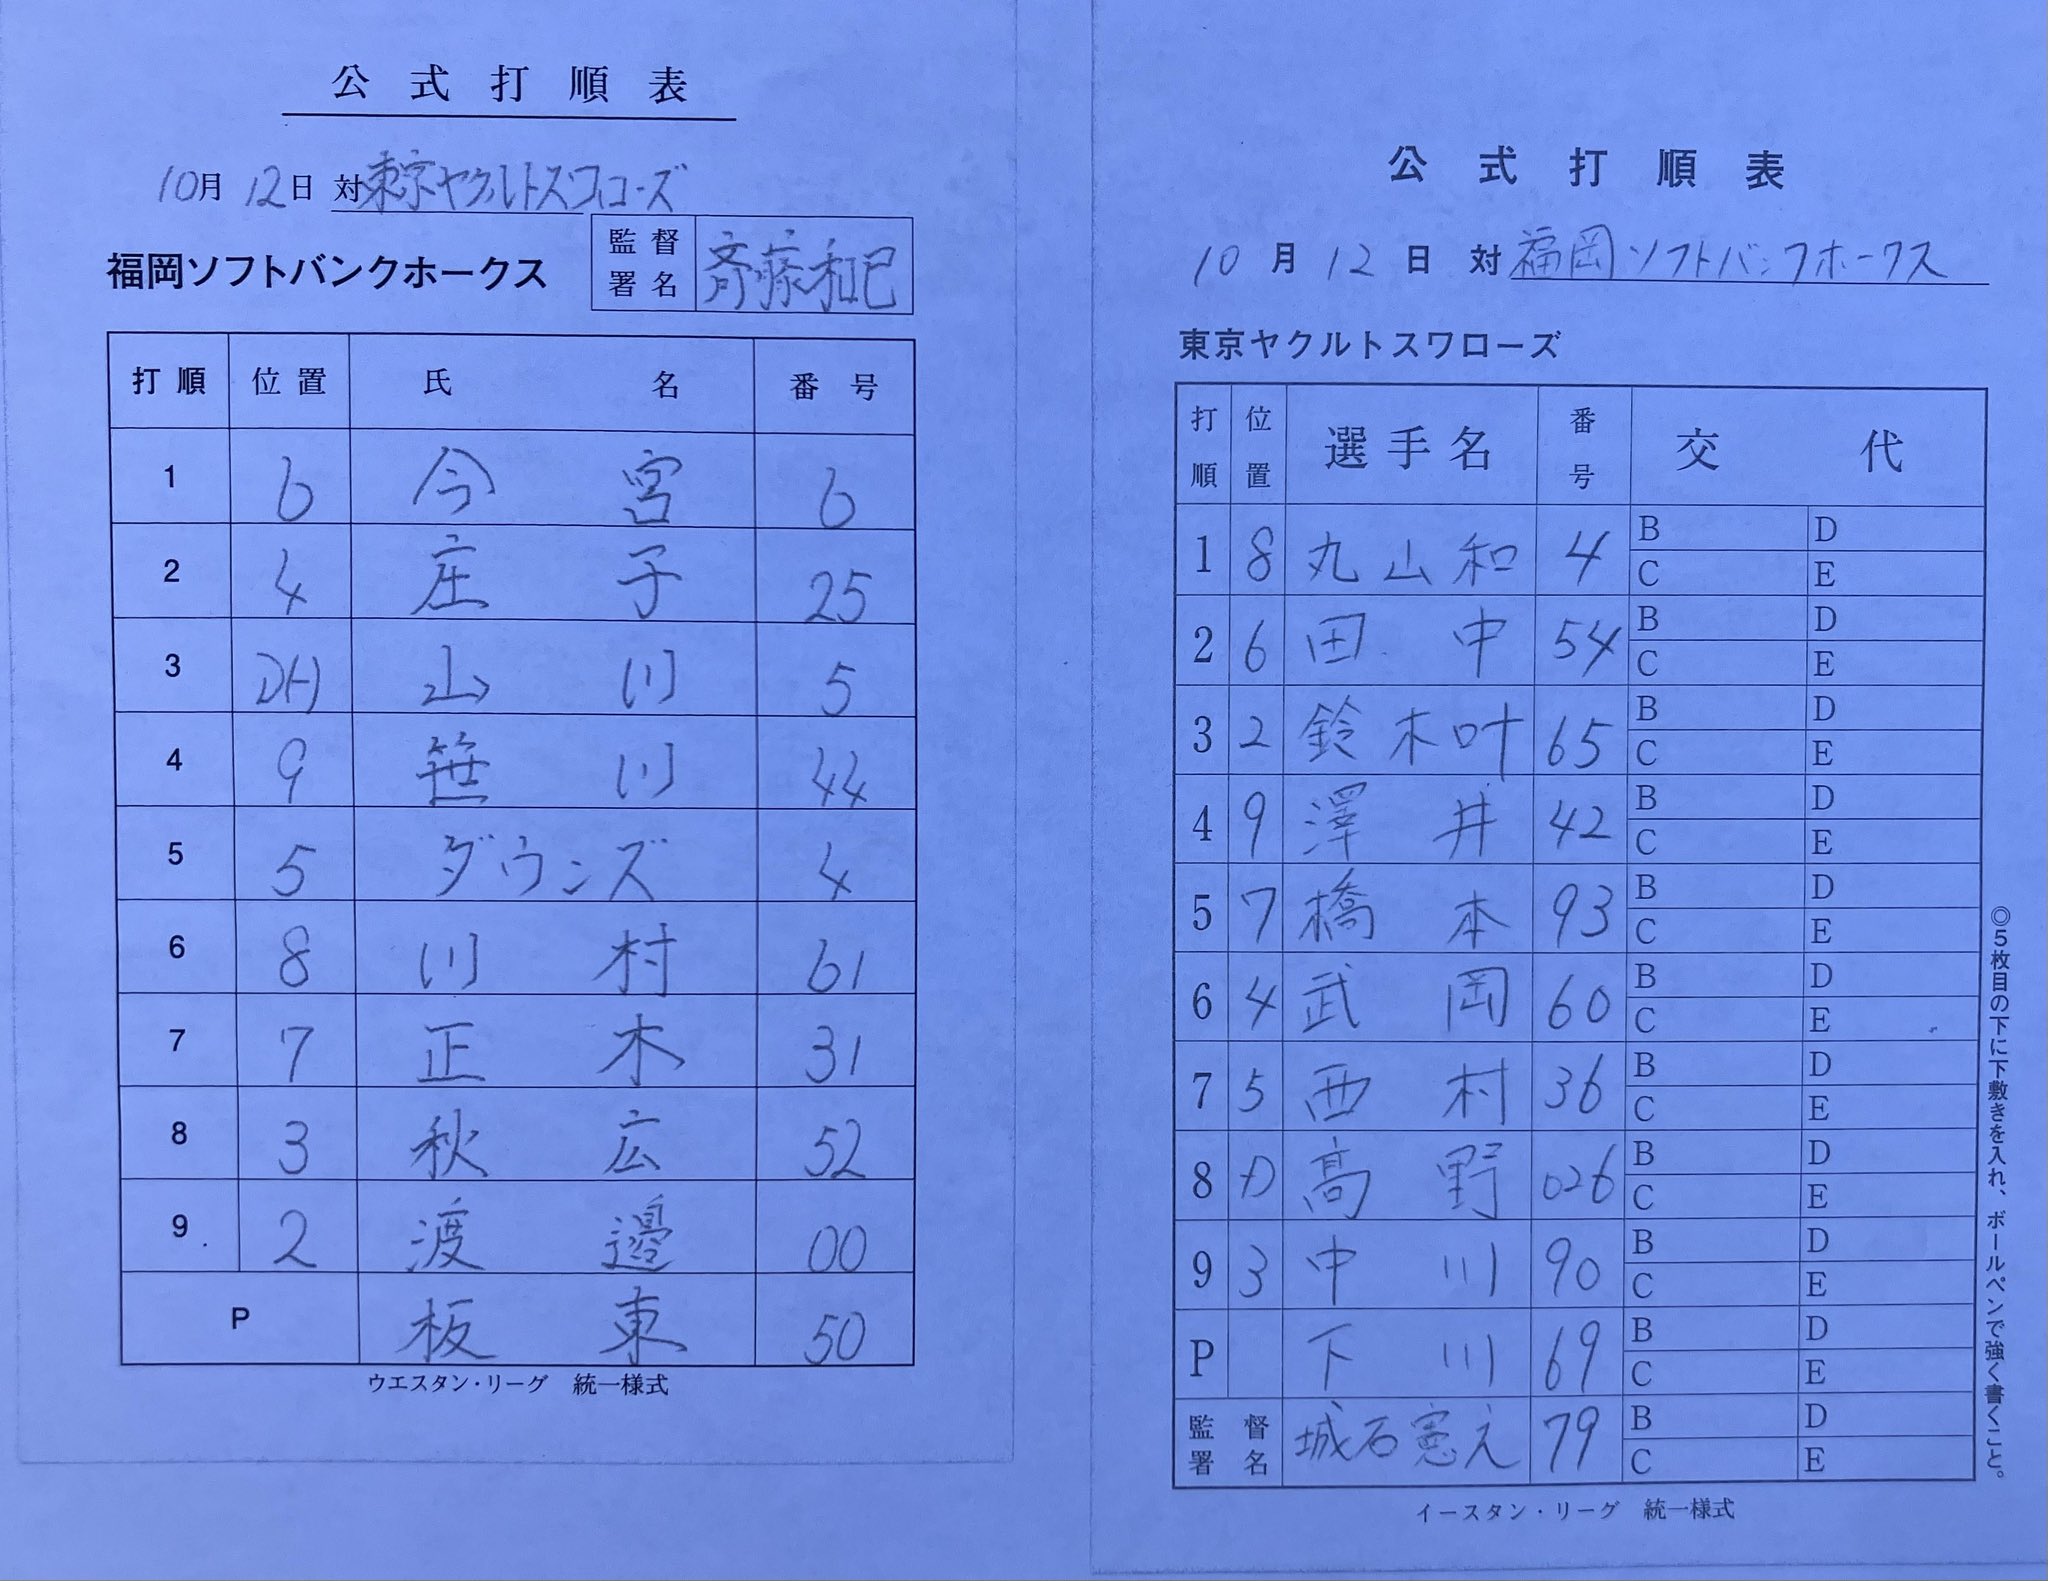 公式打順表
10月12日 対 東京ヤクルトスワローズ
福岡ソフトバンクホークス
監督署名 斉藤和巳
打順 位置 氏名 番号
1 6 今宮 6
2 4 庄子 25
3 DH 山川 5
4 9 笹川 44
5 5 ダウンズ 4
6 8 川村 61
7 7 正木 31
8 3 秋広 52
9 2 渡邉 00
P 板東 50
ウエスタン・リーグ 統一様式
公式打順表
10月12日 対 福岡ソフトバンクホークス
東京ヤクルトスワローズ
打順 位置 選手名 番号 交代
1 8 丸山和 4 B D
C E
2 6 田中 54 B D
C E
3 2 鈴木叶 65 B D
C E
4 9 澤井 42 B D
C E
5 7 橋本 93 B D
C E
6 4 武岡 60 B D
C E
7 5 西村 36 B D
C E
8 D 髙野 026 B D
C E
9 3 中川 90 B D
C E
P 下川 69 B D
C E
監督署名 城石憲之 79 B D
C E
◎5枚目の下に下敷きを入れ、ボールペンで強く書くこと。
イースタン・リーグ 統一様式